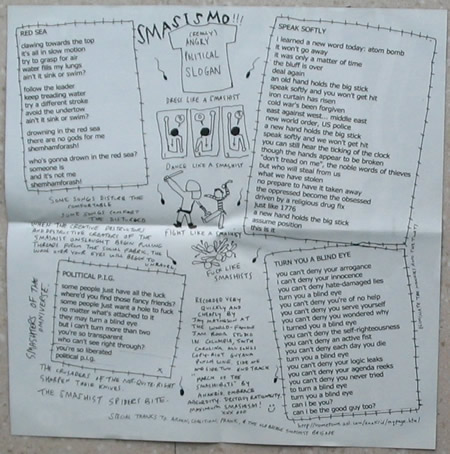 SMASISMO!!!
RED SEA
clawing towards the top
it's all in slow motion
try to grasp for air
water fills my lungs
ain't it sink or swim?
follow the leader
keep treading water
try a different stroke
avoid the undertow
ain't it sink or swim?
drowning in the red sea
there are no gods for me
shemhamforash!
who's gonna drown in the red sea?
someone is
and it's not me
shemhamforash!
(REALLY)
ANGRY
POLITICAL
SLOGAN
DRESS LIKE A SMASHIST
DANCE LIKE A SMASHIST
FIGHT LIKE A SMASHIST
FUCK LIKE
SMASHISTS
SPEAK SOFTLY
I learned a new word today: atom bomb
it won't go away
it was only a matter of time
the bluff is over
deal again
an old hand holds the big stick
speak softly and you won't get hit
iron curtain has risen
cold war's been forgiven
east against west... middle east
new world order, US police
a new hand holds the big stick
speak softly and we won't get hit
you can still hear the ticking of the clock
though the hands appear to be broken
"don't tread on me", the noble words of thieves
but who will steal from us
what we have stolen
no prepare to have it taken away
the oppressed become the obsessed
driven by a religious drug fix
just like 1776
a new hand holds the big stick
assume position
this is it
SOME SONGS DISTURB THE
COMFORTABLE
SOME SONGS COMFORT
THE DISTURBED
WHEN THE CREATIVE DESTROYERS
AND DESTRUCTIVE CREATORS OF THE
SMASHIST ONSLAUGHT BEGIN PULLING
THREADS FROM THE SOCIAL FABRIC, THE
WOOL OVER YOUR EYES WILL BEGIN TO
UNRAVEL
SMASHERS OF THE
UNIVERSE
POLITICAL P.I.G.
some people just have all the luck
where'd you find those fancy friends?
some people just want a hole to fuck
no matter what's attached to it
they may turn a blind eye
but I can't turn more than two
you're so transparent
who can't see right through?
you're so liberated
political p.i.g.
THE CRUSADERS OF THE NOT-QUITE RIGHT
SHARPEN THEIR KNIVES
THE SMASHIST SPIDERS BITE.
RECORDED VERY
QUICKLY AND
CHEAPLY BY
JAY MATHESON AT
THE WORLD-FAMOUS
JAM ROOM STUDIO
IN COLUMBIA, SOUTH
CAROLINA. ALL SONGS
COPY-LEFT
PLUNK
SIDE TWO END TRACK
"MARCH OF THE
SMASHISTS" BY
EMBRACE
ABSURDITY, DESTROY RATIONALITY,
MAXIMUM SMASHISM!
XXX
TURN YOU A BLIND EYE
you can't deny your arrogance
I can't deny your innocence
you can't deny hate-damaged lies
turn you a blind eye
you can't deny you're of no help
you can't deny you serve yourself
you can't deny you wondered why
I turned you a blind eye
you can't deny the self-righteousness
you can't deny an active fist
you can't deny each day you die
turn you a blind eye
you can't deny your logic leaks
you can't deny your agenda reeks
you can't deny you never tried
to turn a blind eye
turn you a blind eye
can I be you?
can I be the good guy too?
SPECIAL THANKS TO